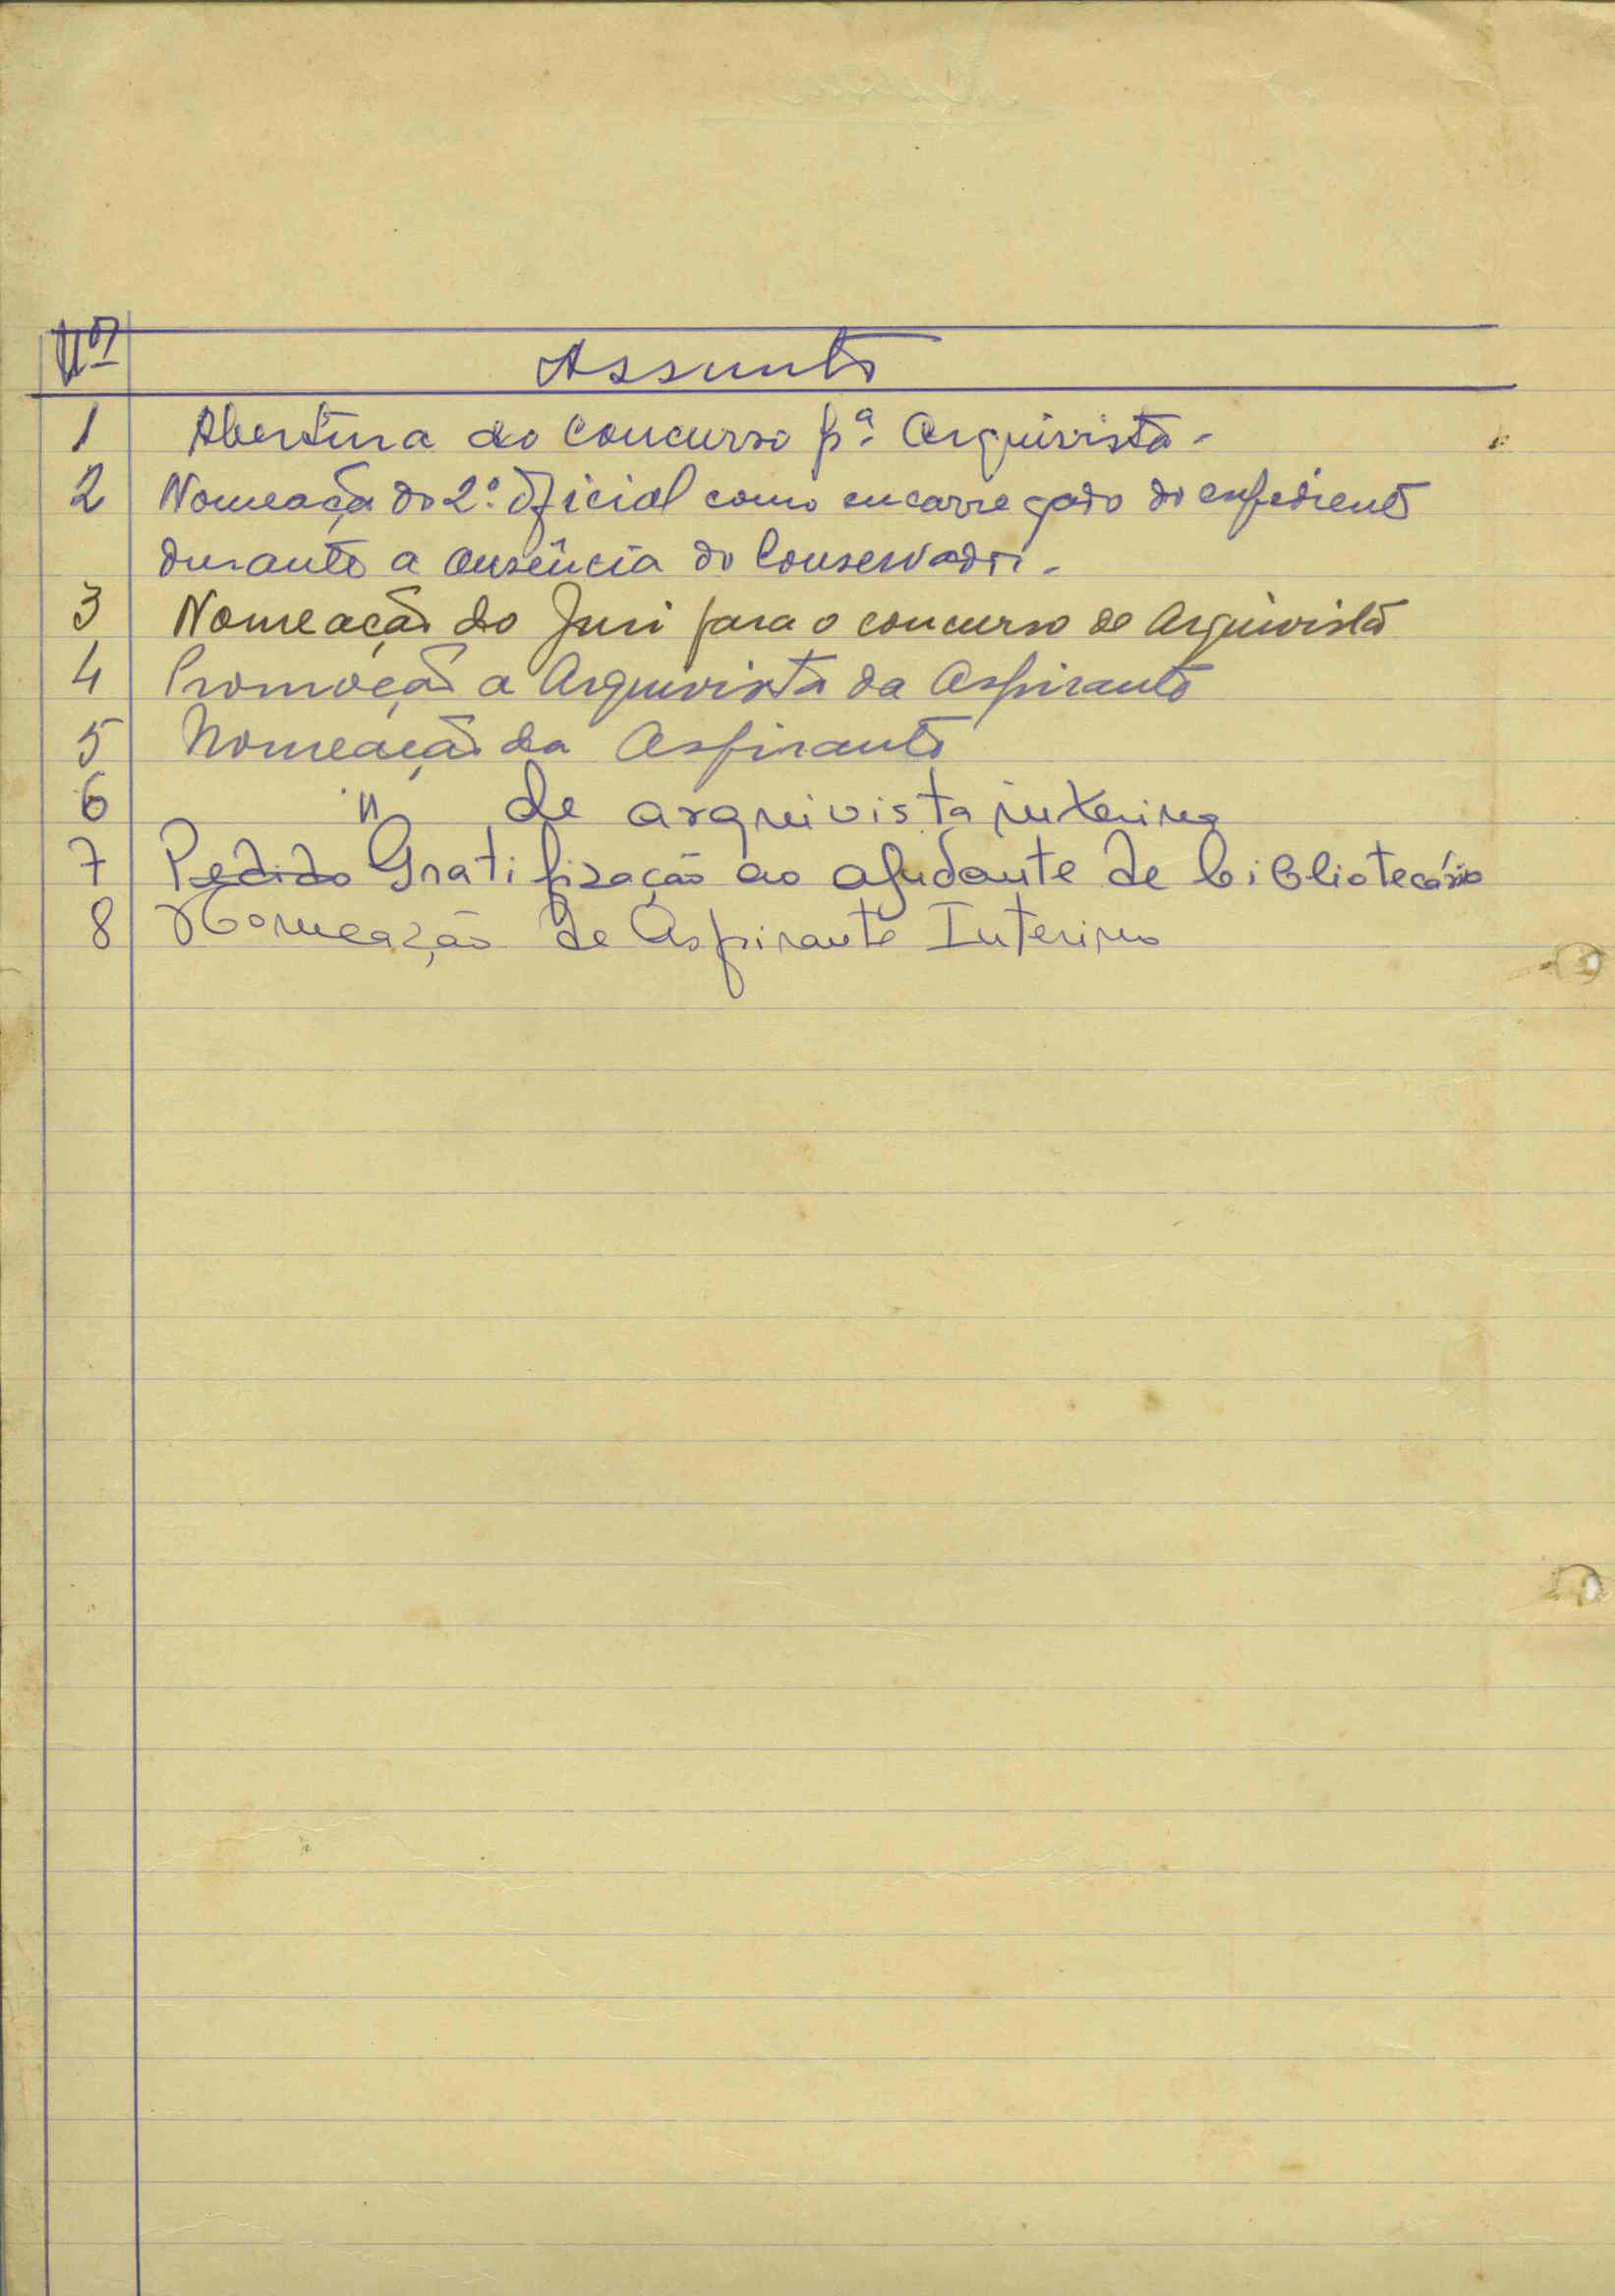 Nº Assunto
1 Abertura do concurso pª. Arquivista.
2 Nomeação do 2º. Oficial como encarregado do expediente
durante a ausência do Conservador.
3 Nomeação do Juri para o concurso de Arquivista
4 Promoção a Arquivista da Aspirante
5 Nomeação da Aspirante
6 " de arquivista interino
7 Pedido Gratificação ao ajudante de bibliotecário
8 Nomeação de Aspirante Interino